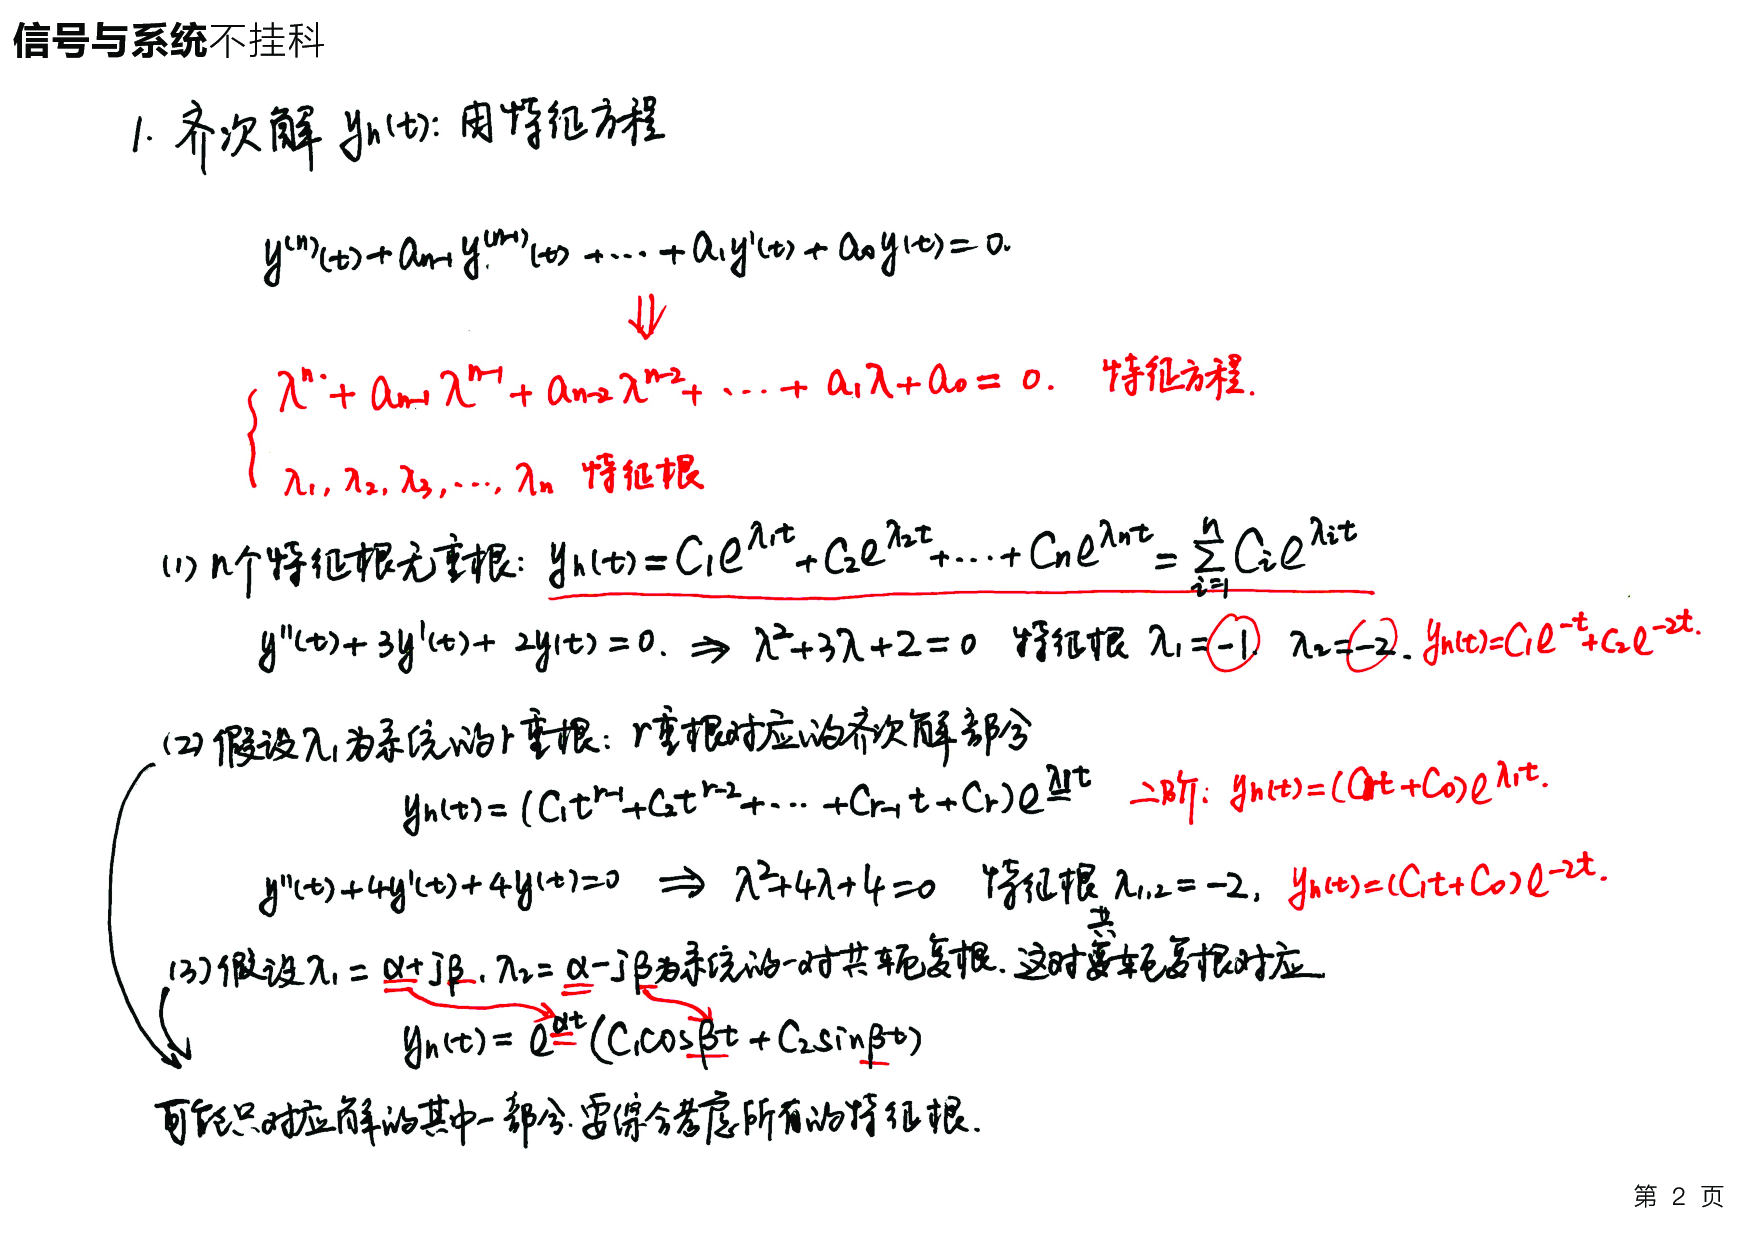 信号与系统不挂科
1. 齐次解 yₕ(t): 用特征方程
y⁽ⁿ⁾(t) + aₙ₋₁ y⁽ⁿ⁻¹⁾(t) + ··· + a₁y'(t) + a₀y(t) = 0.
⇓
λⁿ + aₙ₋₁ λⁿ⁻¹ + aₙ₋₂ λⁿ⁻² + ··· + a₁λ + a₀ = 0. 特征方程.
λ₁, λ₂, λ₃, ···, λₙ 特征根
(1) n个特征根无重根: yₕ(t) = C₁e^{λ₁t} + C₂e^{λ₂t} + ··· + Cₙe^{λₙt} = ∑_{i=1}^{n} Cᵢe^{λᵢt}
y''(t) + 3y'(t) + 2y(t) = 0. ⇒ λ² + 3λ + 2 = 0 特征根 λ₁ = -1. λ₂ = -2. yₕ(t) = C₁e^{-t} + C₂e^{-2t}.
(2) 假设λ₁为系统的r重根: r重根对应的齐次解部分
yₕ(t) = (C₁t^{r-1} + C₂t^{r-2} + ··· + Cᵣ₋₁t + Cᵣ)e^{λ₁t} 二阶: yₕ(t) = (C₁t + C₀)e^{λ₁t}.
y''(t) + 4y'(t) + 4y(t) = 0 ⇒ λ² + 4λ + 4 = 0 特征根 λ₁,₂ = -2, yₕ(t) = (C₁t + C₀)e^{-2t}.
(3) 假设λ₁ = α + jβ, λ₂ = α - jβ为系统的一对共轭复根. 这对共轭复根对应
yₕ(t) = e^{αt}(C₁cosβt + C₂sinβt)
可能只对应解的其中一部分. 要综合考虑所有的特征根.
第 2 页